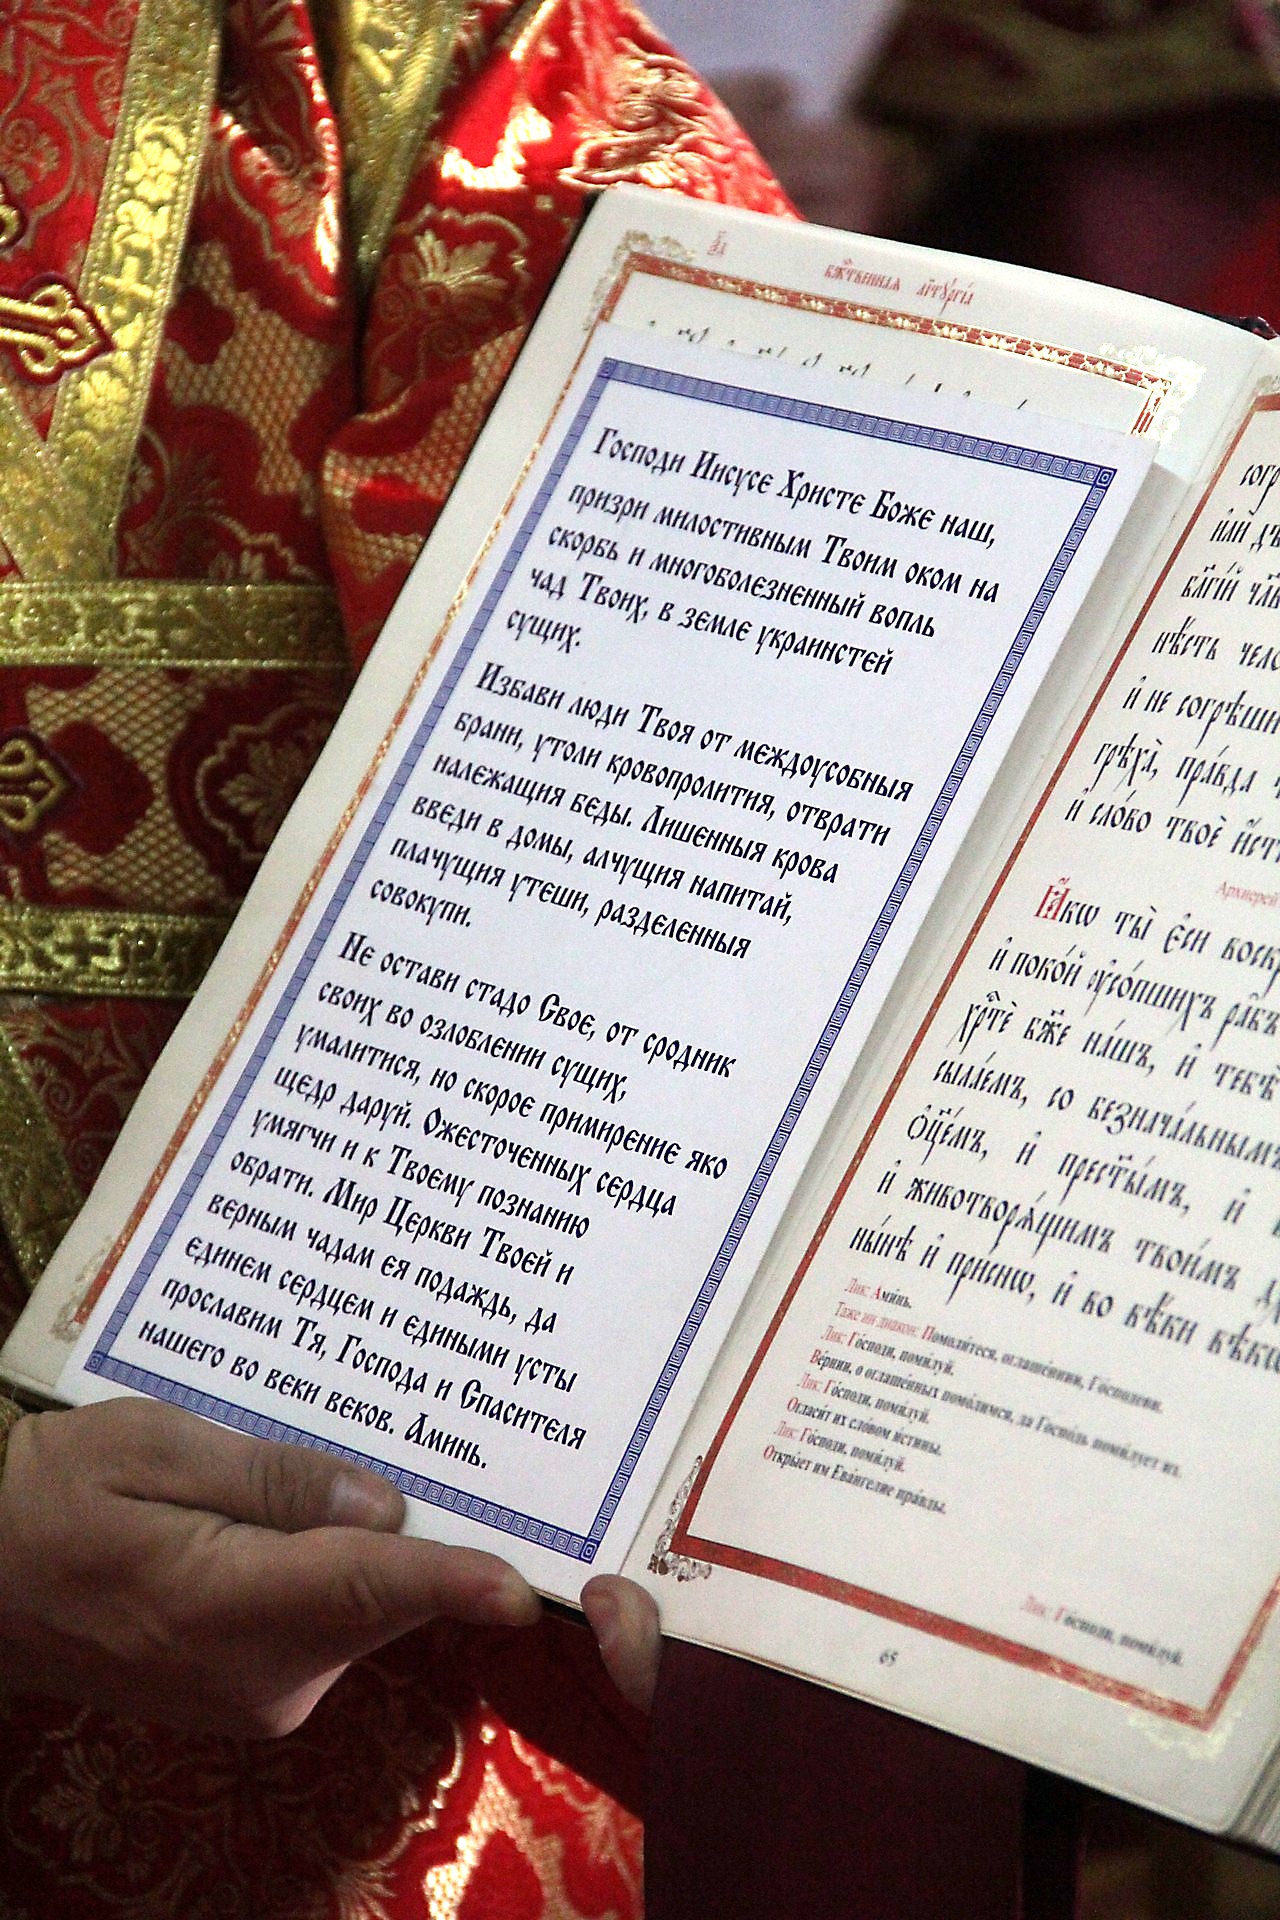 бж҃твеннаѧ лїтꙋргі́а
Господи Иисусе Христе Боже наш,
призри милостивным Твоим оком на
скорбь и многоболезненный вопль
чад Твоих, в земле украинстей
сущих.
Избави люди Твоя от междоусобныя
брани, утоли кровопролития, отврати
належащия беды. Лишенныя крова
введи в домы, алчущия напитай,
плачущия утеши, разделенныя
совокупи.
Не остави стадо Свое, от сродник
своих во озлоблении сущих,
умалитися, но скорое примирение яко
щедр даруй. Ожесточенных сердца
умягчи и к Твоему познанию
обрати. Мир Церкви Твоей и
верным чадам ея подаждь, да
единем сердцем и едиными усты
прославим Тя, Господа и Спасителя
нашего во веки веков. Аминь.
и҆лѝ
блг҃і́й
нѣ́сть
и҆ не согрѣши
грѣха̀, пра́вда
и҆ сло́во твоѐ
Архиерей
Ꙗ҆́кѡ ты̀ є҆сѝ
и҆ поко́й ᲂу҆со́пшихъ ра̑бъ
хрⷭ҇тѐ бж҃е на́шъ, и҆ тебѣ̀
сыла́емъ, со безнача́льнымъ
ѻ҆ц҃е́мъ, и҆ прест҃ы́мъ, и҆
и҆ животворѧ́щимъ твои́мъ
ны́нѣ и҆ при́снѡ, и҆ во вѣ́ки
Лик: Ами́нь.
Таже ин диакон: Помоли́теся, оглаше́ннии, Го́сподеви.
Лик: Го́споди, поми́луй.
Ве́рнии, о оглаше́нных помо́лимся, да Госпо́дь поми́лует их.
Лик: Го́споди, поми́луй.
Огласи́т их сло́вом и́стины.
Лик: Го́споди, поми́луй.
Откры́ет им Ева́нгелие пра́вды.
Лик: Го́споди, поми́луй.
65